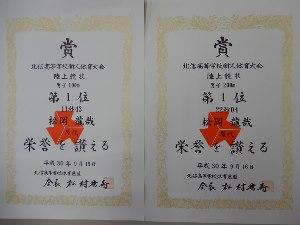 賞
北信高等学校新人体育大会
陸上競技
男子100m
第1位
11秒13
松岡 龍哉
栄誉を讃える
平成30年9月15日
北信高等学校体育連盟
会長
賞
北信高等学校新人体育大会
陸上競技
男子200m
第1位
松岡 龍哉
栄誉を讃える
平成30年9月16日
北信高等学校体育連盟
会長